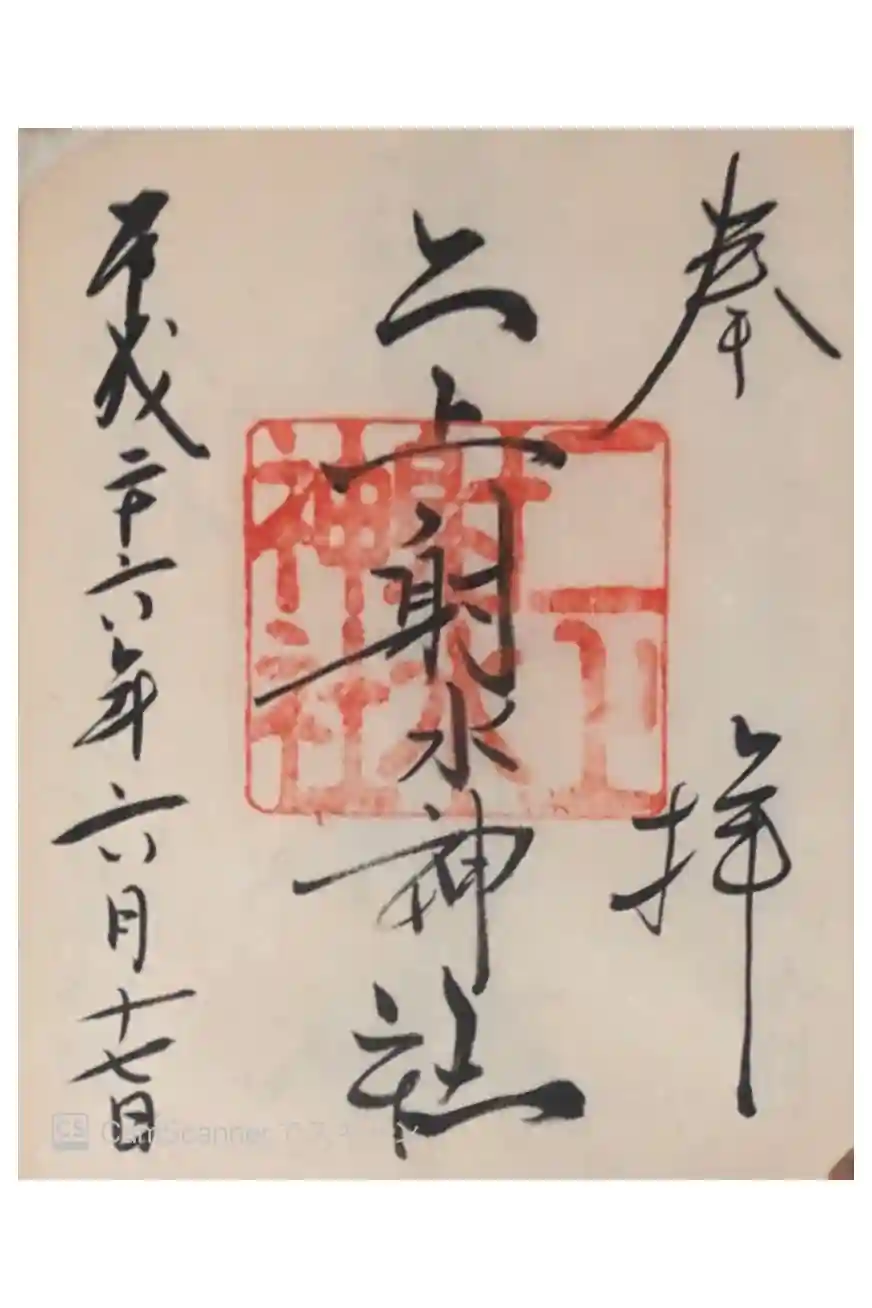 奉拝
二上射水神社
平成二十六年六月十七日
二上
射水
神社
CS CamScanner でスキャン